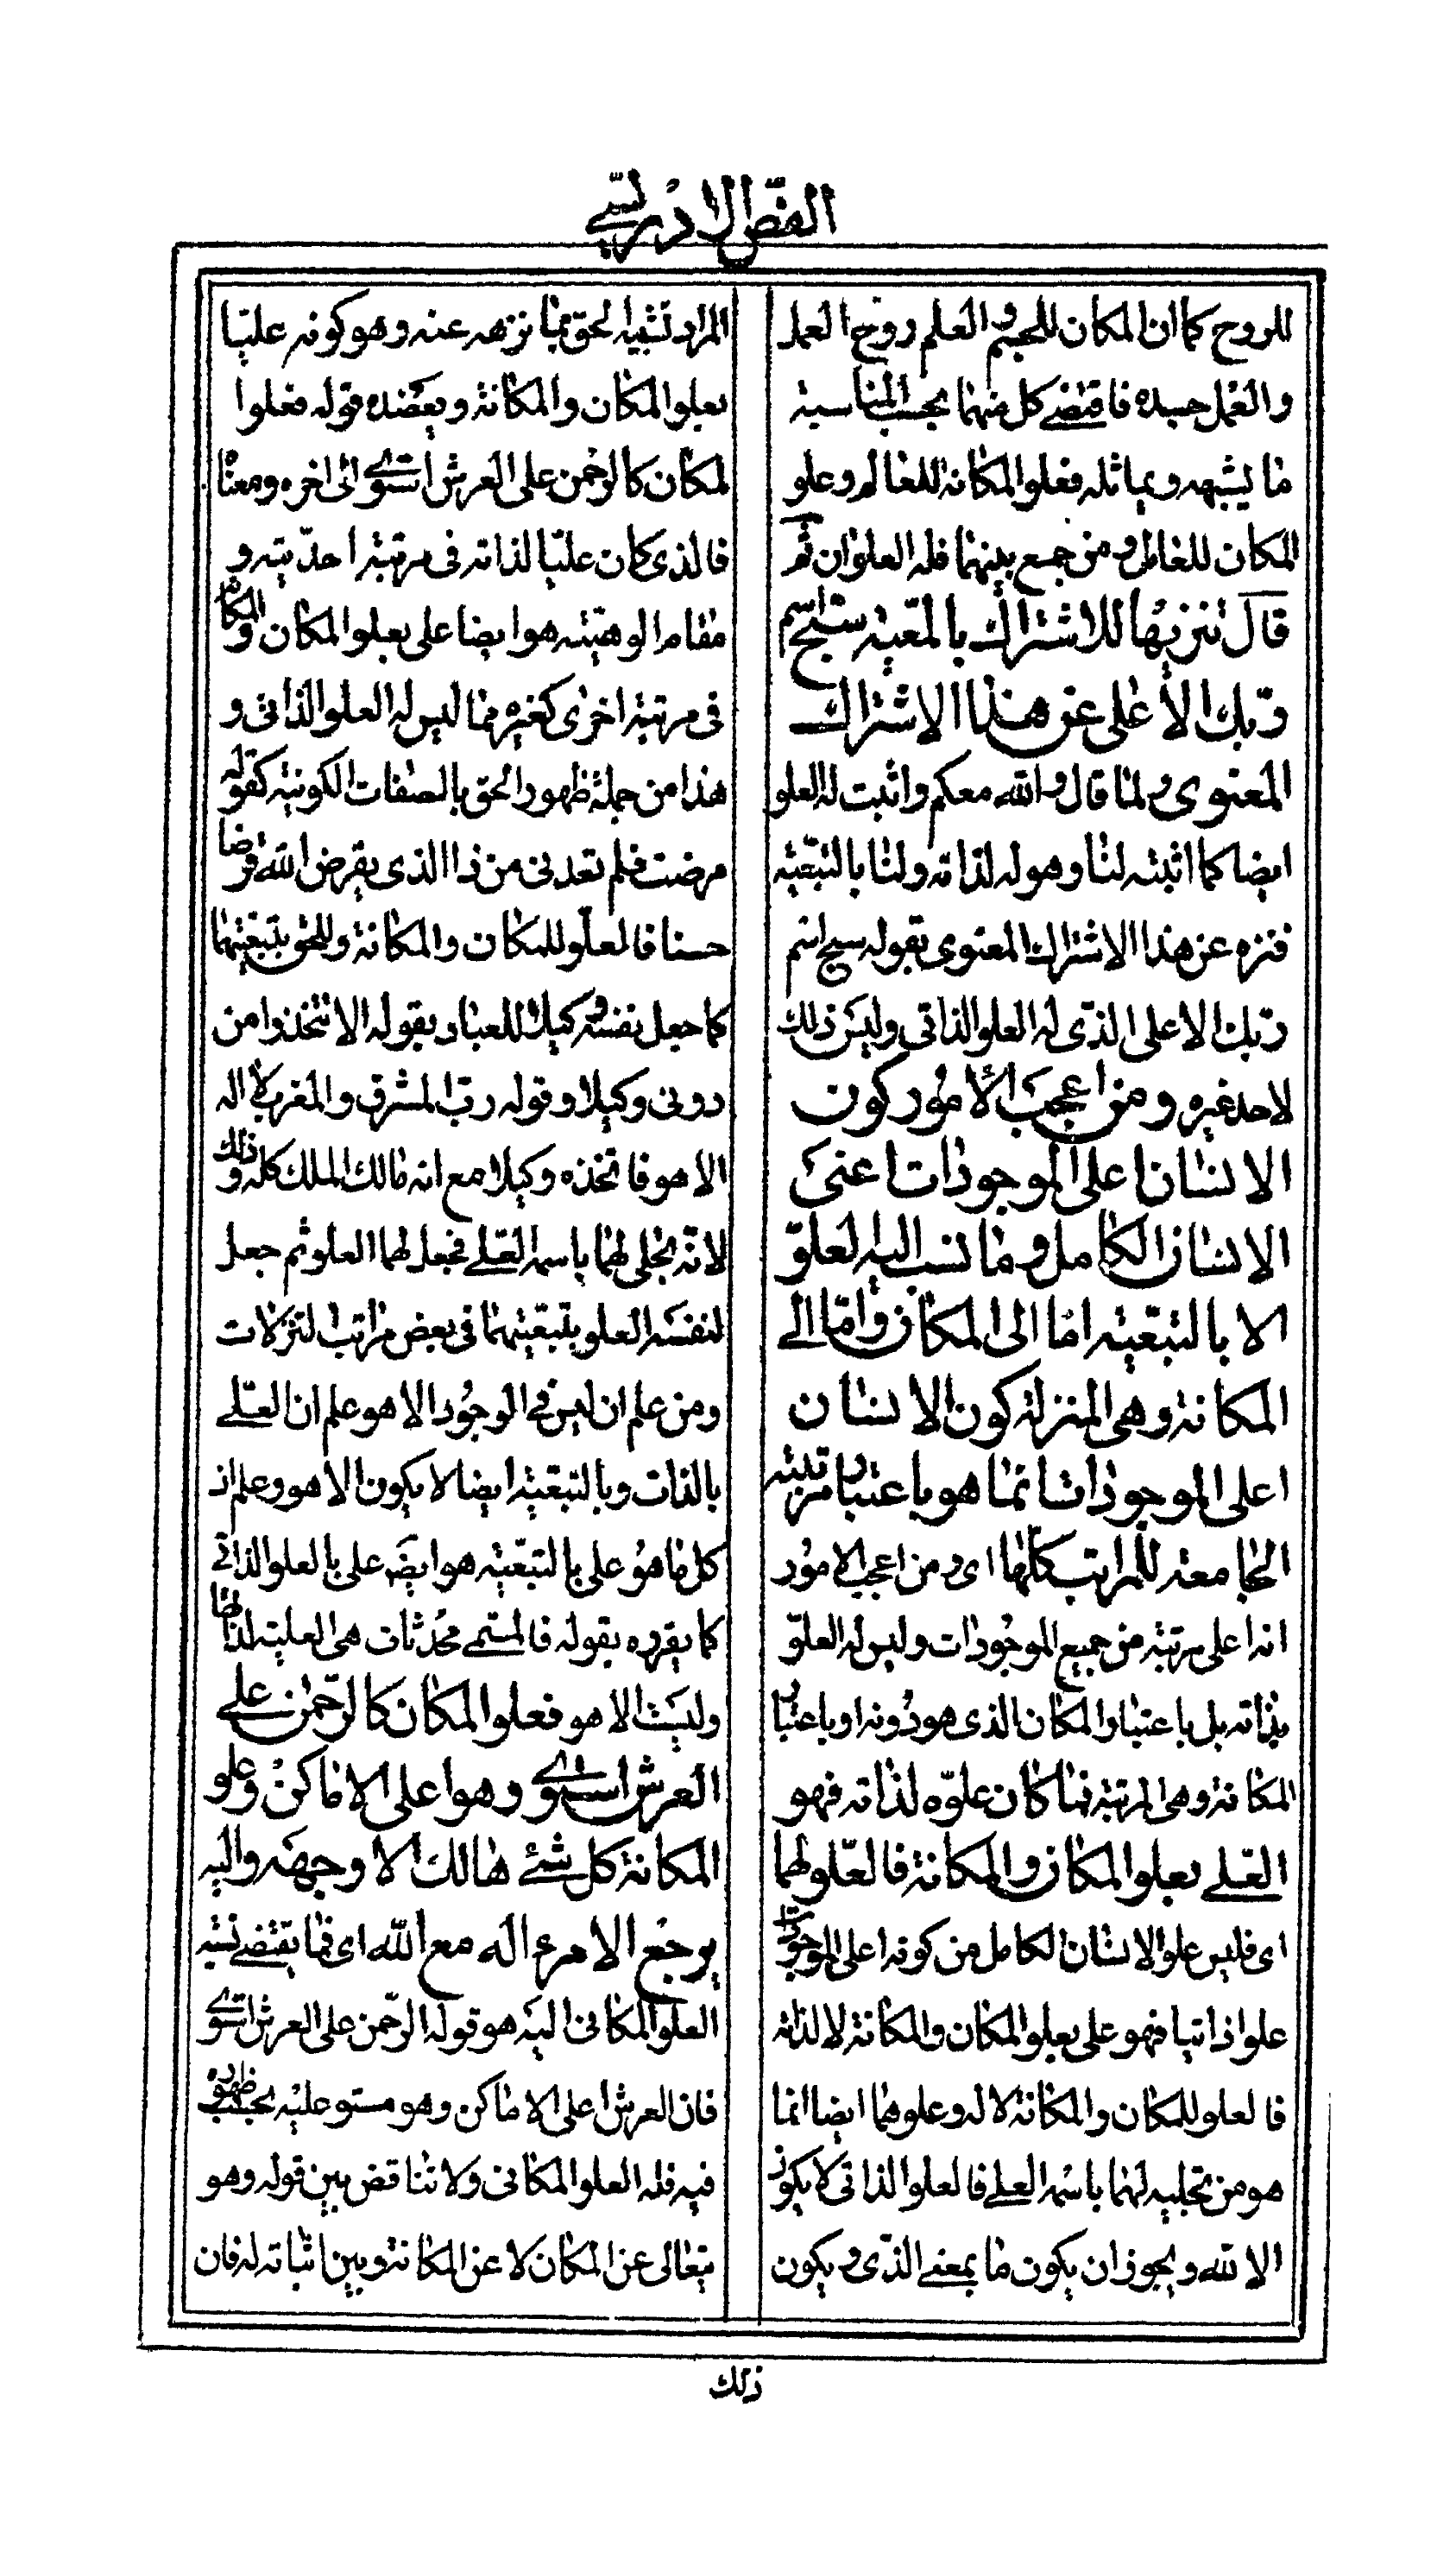 الفص الادريسي
للروح كما ان المكان للجسم والعلم روح العمل
والعمل جسده فاقتضى كل منهما بحسب المناسبة
ما يشبهه ويماثله فعلو المكانة للعالم وعلو
المكان للعامل ومن جمع بينهما فله العلوان ثم
قال تنزيها للاشتراك بالمعية سبح اسم
ربك الأعلى عن هذا الاشتراك
المعنوى ولما قال والله معكم واثبت له العلو
ايضا كما اثبته لنا وهو له لذاته ولنا بالتبعية
فنزه عن هذا الاشتراك المعنوى بقوله سبح اسم
ربك الاعلى الذى له العلو الذاتى وليس ذلك
لاحد غيره ومن اعجب الأمور كون
الانسان اعلى الموجودات اعنى
الانسان الكامل وما نسب اليه العلوّ
الا بالتبعية اما الى المكان وامّا الى
المكانة وهى المنزلة كون الانسان
اعلى الموجودات انما هو باعتبار مرتبته
الجامعة للمراتب كلها اى ومن اعجب الامور
انه اعلى مرتبة من جميع الموجودات وليس له العلوّ
بذاته بل باعتبار المكان الذى هو دونه او باعتبار
المكانة وهى المرتبة فما كان علوّه لذاته فهو
العلى بعلو المكان والمكانة فالعلو لهما
اى فليس علو الانسان الكامل من كونه اعلى الموجودات
علوا ذاتيا فهو على بعلو المكان والمكانة لا لذاته
فالعلو للمكان والمكانة لا له وعلوهما ايضا انما
هو من تجليه لهما باسمه العلى فالعلو الذاتى لا يكون
الا لله ويجوز ان يكون ما بمعنى الذى ويكون
المراد تشبيه الحق بما نزهه عنه وهو كونه عليّا
بعلو المكان والمكانة ويعضده قوله فعلو
المكان كالرحمن على العرش استوى الى اخره ومعناه
فالذى كان عليّا لذاته فى مرتبة احديته و
مقام الوهيته هو ايضا على بعلو المكان والمكانة
فى مرتبة اخرى كغيره مما ليس له العلو الذاتى و
هذا من جملة ظهور الحق بالصفات الكونية كقوله
مرضت فلم تعدنى من ذا الذى يقرض الله قرضا
حسنا فالعلو للمكان والمكانة وللحق بتبعيتهما
كما جعل نفسه وكيلا للعباد بقوله الا تتخذوا من
دونى وكيلا وقوله رب المشرق والمغرب لا اله
الا هو فاتخذه وكيلا مع انه مالك الملك كله وذلك
لانه تجلى لهما باسمه العلى فجعل لهما العلو ثم جعل
لنفسه العلو بتبعيتهما فى بعض مراتب التنزلات
ومن علم ان ليس فى الوجود الا هو علم ان العلى
بالذات وبالتبعية ايضا لا يكون الا هو وعلم ان
كل ما هو على بالتبعية هو ايضا على بالعلو الذاتى
كما يقرره بقوله فالمسمى محدثات هى العلية لذاتها
وليست الا هو فعلو المكان كالرّحمن على
العرش استوى وهو اعلى الاماكن وعلو
المكانة كل شئ هالك الا وجهه واليه
يرجع الامر ء اله مع الله اى فما يقتضى نسبة
العلو المكانى اليه هو قوله الرحمن على العرش استوى
فان العرش اعلى الاماكن وهو مستو عليه بحسب ظهوره
فيه فله العلو المكانى ولا تناقض بين قوله وهو
يتعالى عن المكان لا عن المكانة وبين اثباته له فان
ذلك